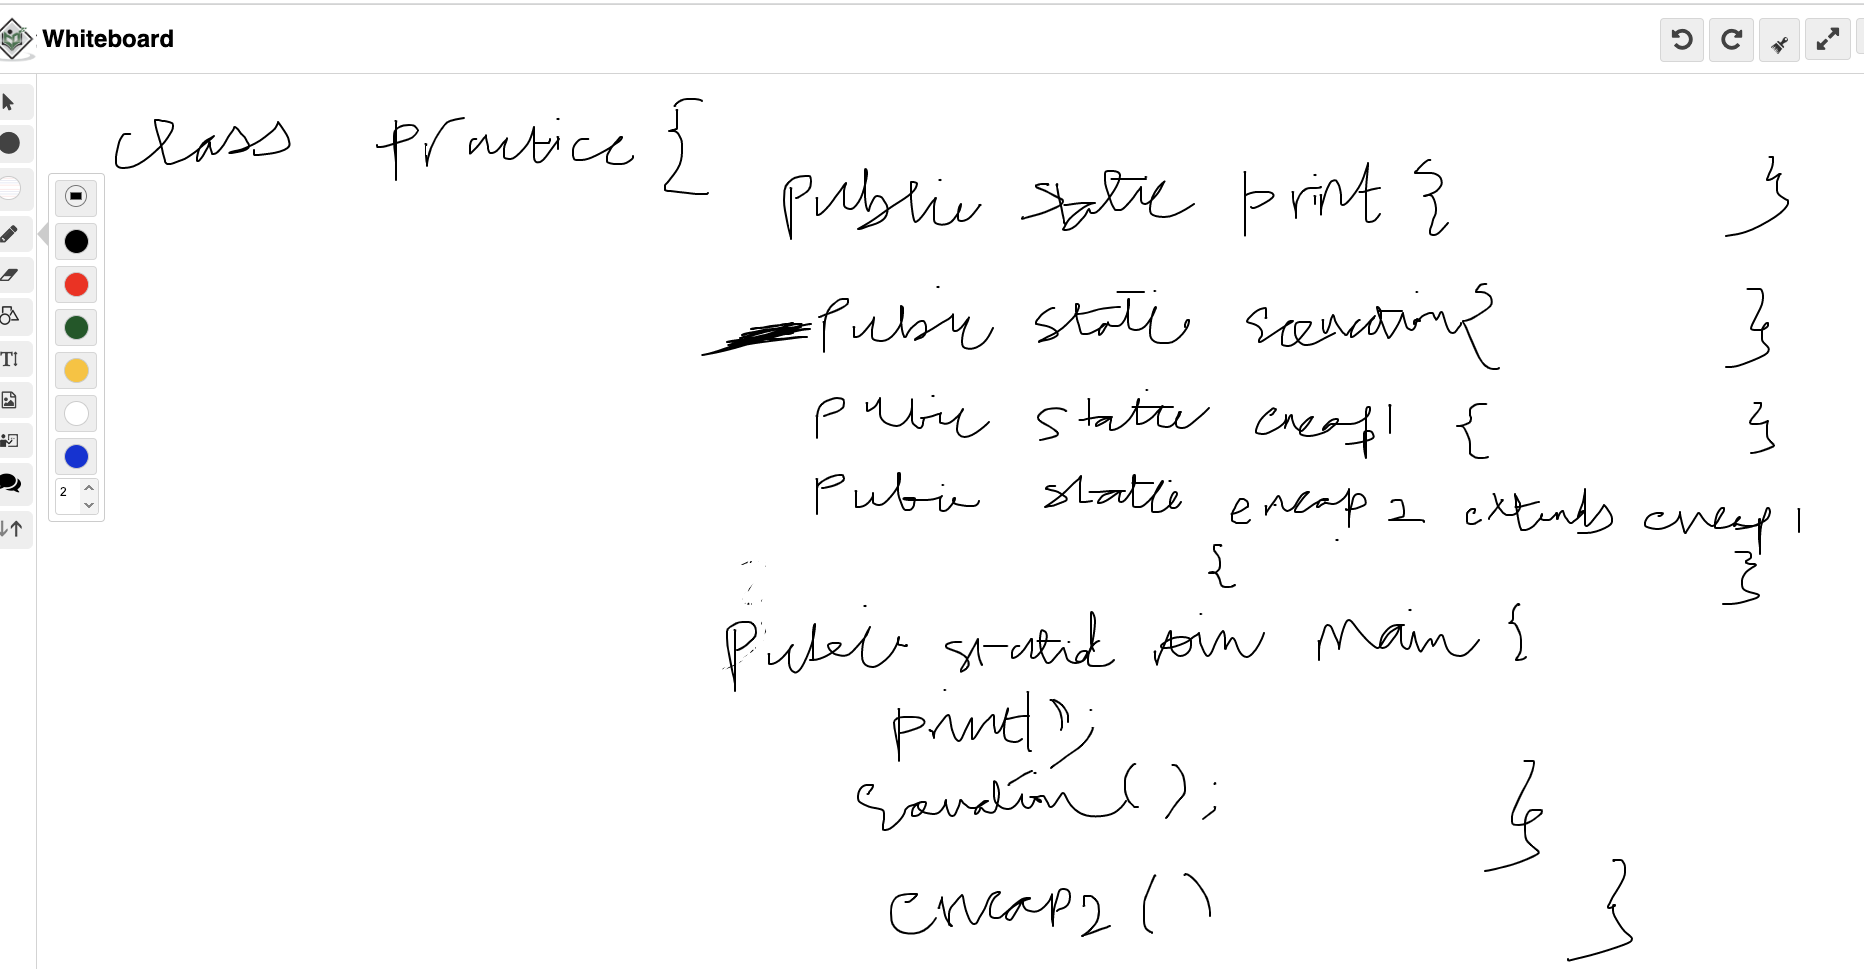 Whiteboard
class practice {
public static print { }
Pubic static equation { }
Pubic static encap1 { }
Pubic static encap2 extends encap1
{ }
2
Public static main {
print();
equation(); }
encap2() }